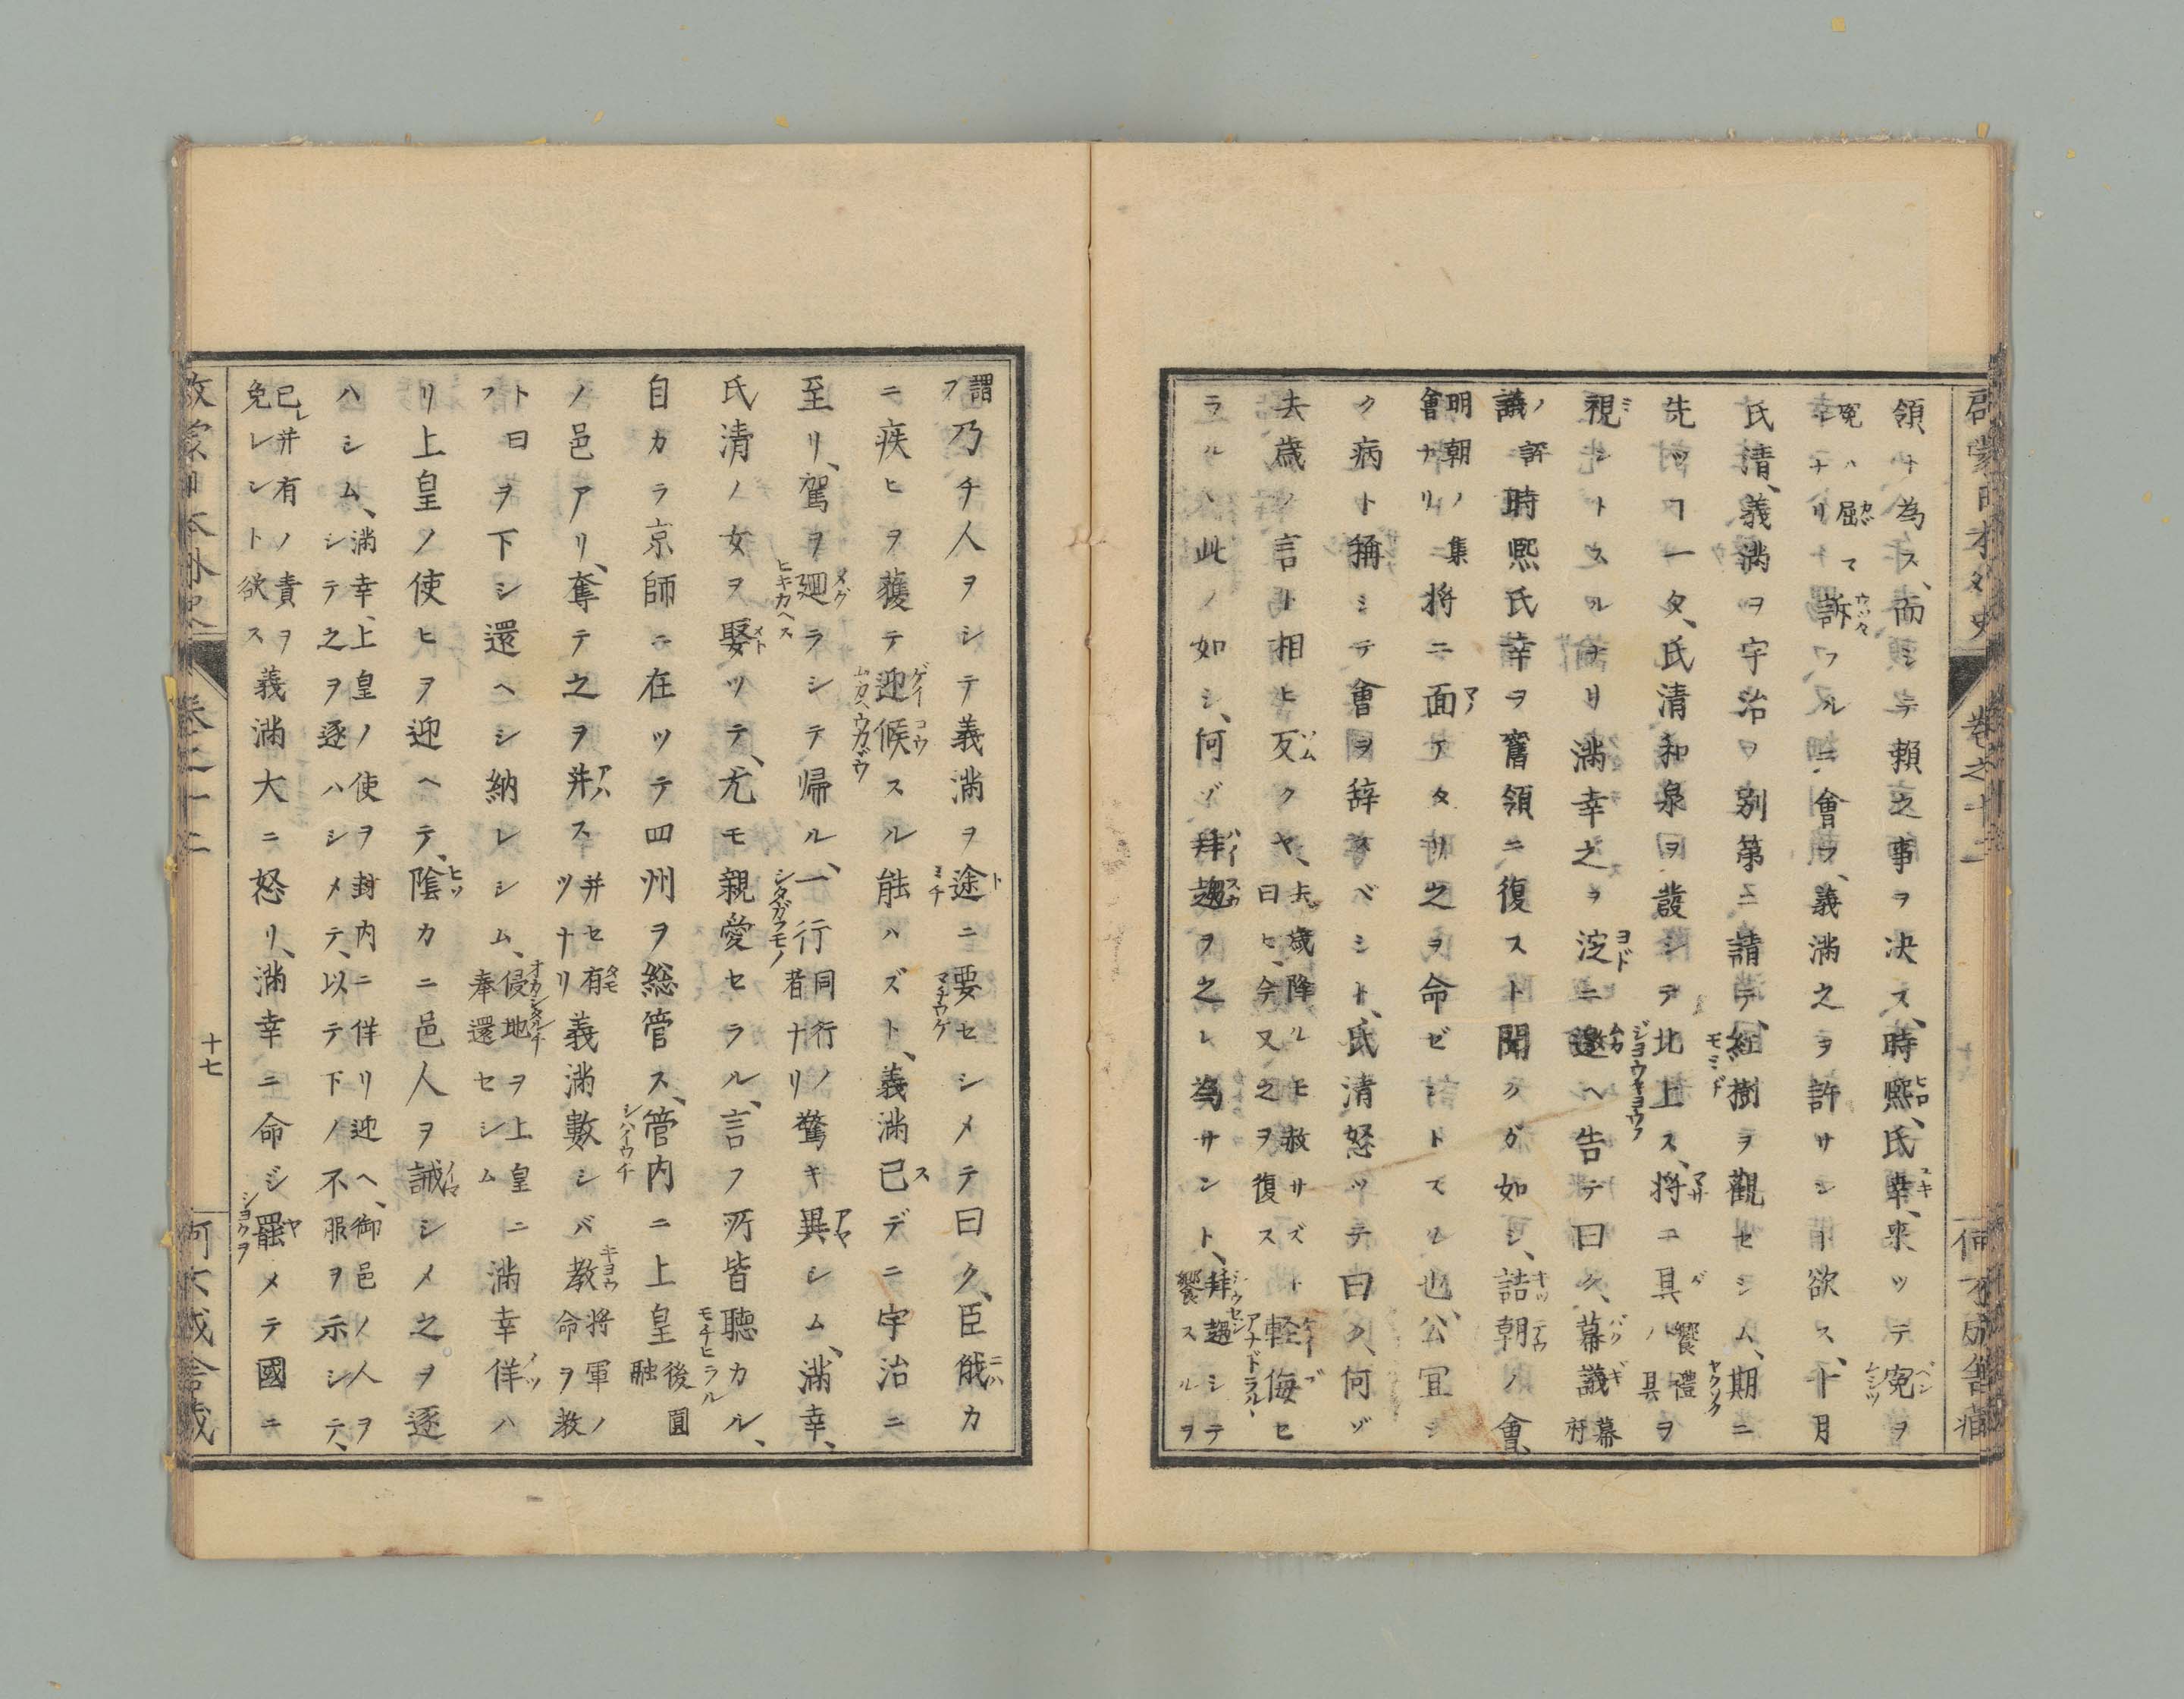 領ト為ス、而シテ頼之事ヲ决ス、時熈、氏幸、来ツテ寃ヲ
寃ハ屈マ
幸ナリ
訴フルニ會フ、義滿之ヲ許サント欲ス、十月
氏清、義滿ヲ宇治ノ別第ニ請テ、紅樹ヲ觀セシム、期ニ
先ツコ一夕、氏清和泉ヲ發シテ北上ス、将ニ具
饗禮
ノ具
ヲ
視ントスルナリ滿幸之ヲ淀ニ邀ヘ告テ曰ク、幕議
幕
府
ノ評
議
時熈氏幸ヲ舊領ニ復スト聞クガ如シ、詰朝ノ會、
明朝ノ集
會ナリ
将ニ面アタリ之ヲ命ゼントスル也、公宜シ
ク病ト稱シテ會ヲ辞スベシト、氏清怒ツテ曰ク、何ゾ
去歳ノ言ト相ヒ反クヤ、
去歳降ルモ赦サズト
曰ヒ、今又之ヲ復ス
軽侮セ
ラル、此ノ如シ、何ゾ拜趨ヲ之レ為サント、
拜趨シテ
饗スルヲ
謂
フ
乃チ人ヲシテ義滿ヲ途ニ要セシメテ曰ク、臣俄カ
ニ疾ヒヲ獲テ迎候スル能ハズト、義滿已デニ宇治ニ
至リ、駕ヲ廻ラシテ帰ル、一行
同行ノ
者ナリ
驚キ異シム、滿幸、
氏清ノ女ヲ娶ツテ、尤モ親愛セラル、言フ所皆聴カル、
自カラ京師ニ在ツテ四州ヲ総管ス、管内ニ上皇
後圓
融
ノ邑アリ、奪テ之ヲ并ス
并セ有
ツナリ
義滿數シバ教
将軍ノ
命ヲ教
ト曰
フ
ヲ下シ還ヘシ納レシム、
侵地ヲ上皇ニ
奉還セシム
滿幸佯ハ
リ上皇ノ使ヒヲ迎ヘテ、陰カニ邑人ヲ誡シメ之ヲ逐
ハシム、
滿幸、上皇ノ使ヲ封内ニ佯リ迎ヘ、御邑ノ人ヲ
シテ之ヲ逐ハシメテ、以テ下ノ不服ヲ示シテ、
已レ并有ノ責ヲ
免レント欲ス
義滿大ニ怒リ、滿幸ニ命ジ罷メテ國ニ
十七